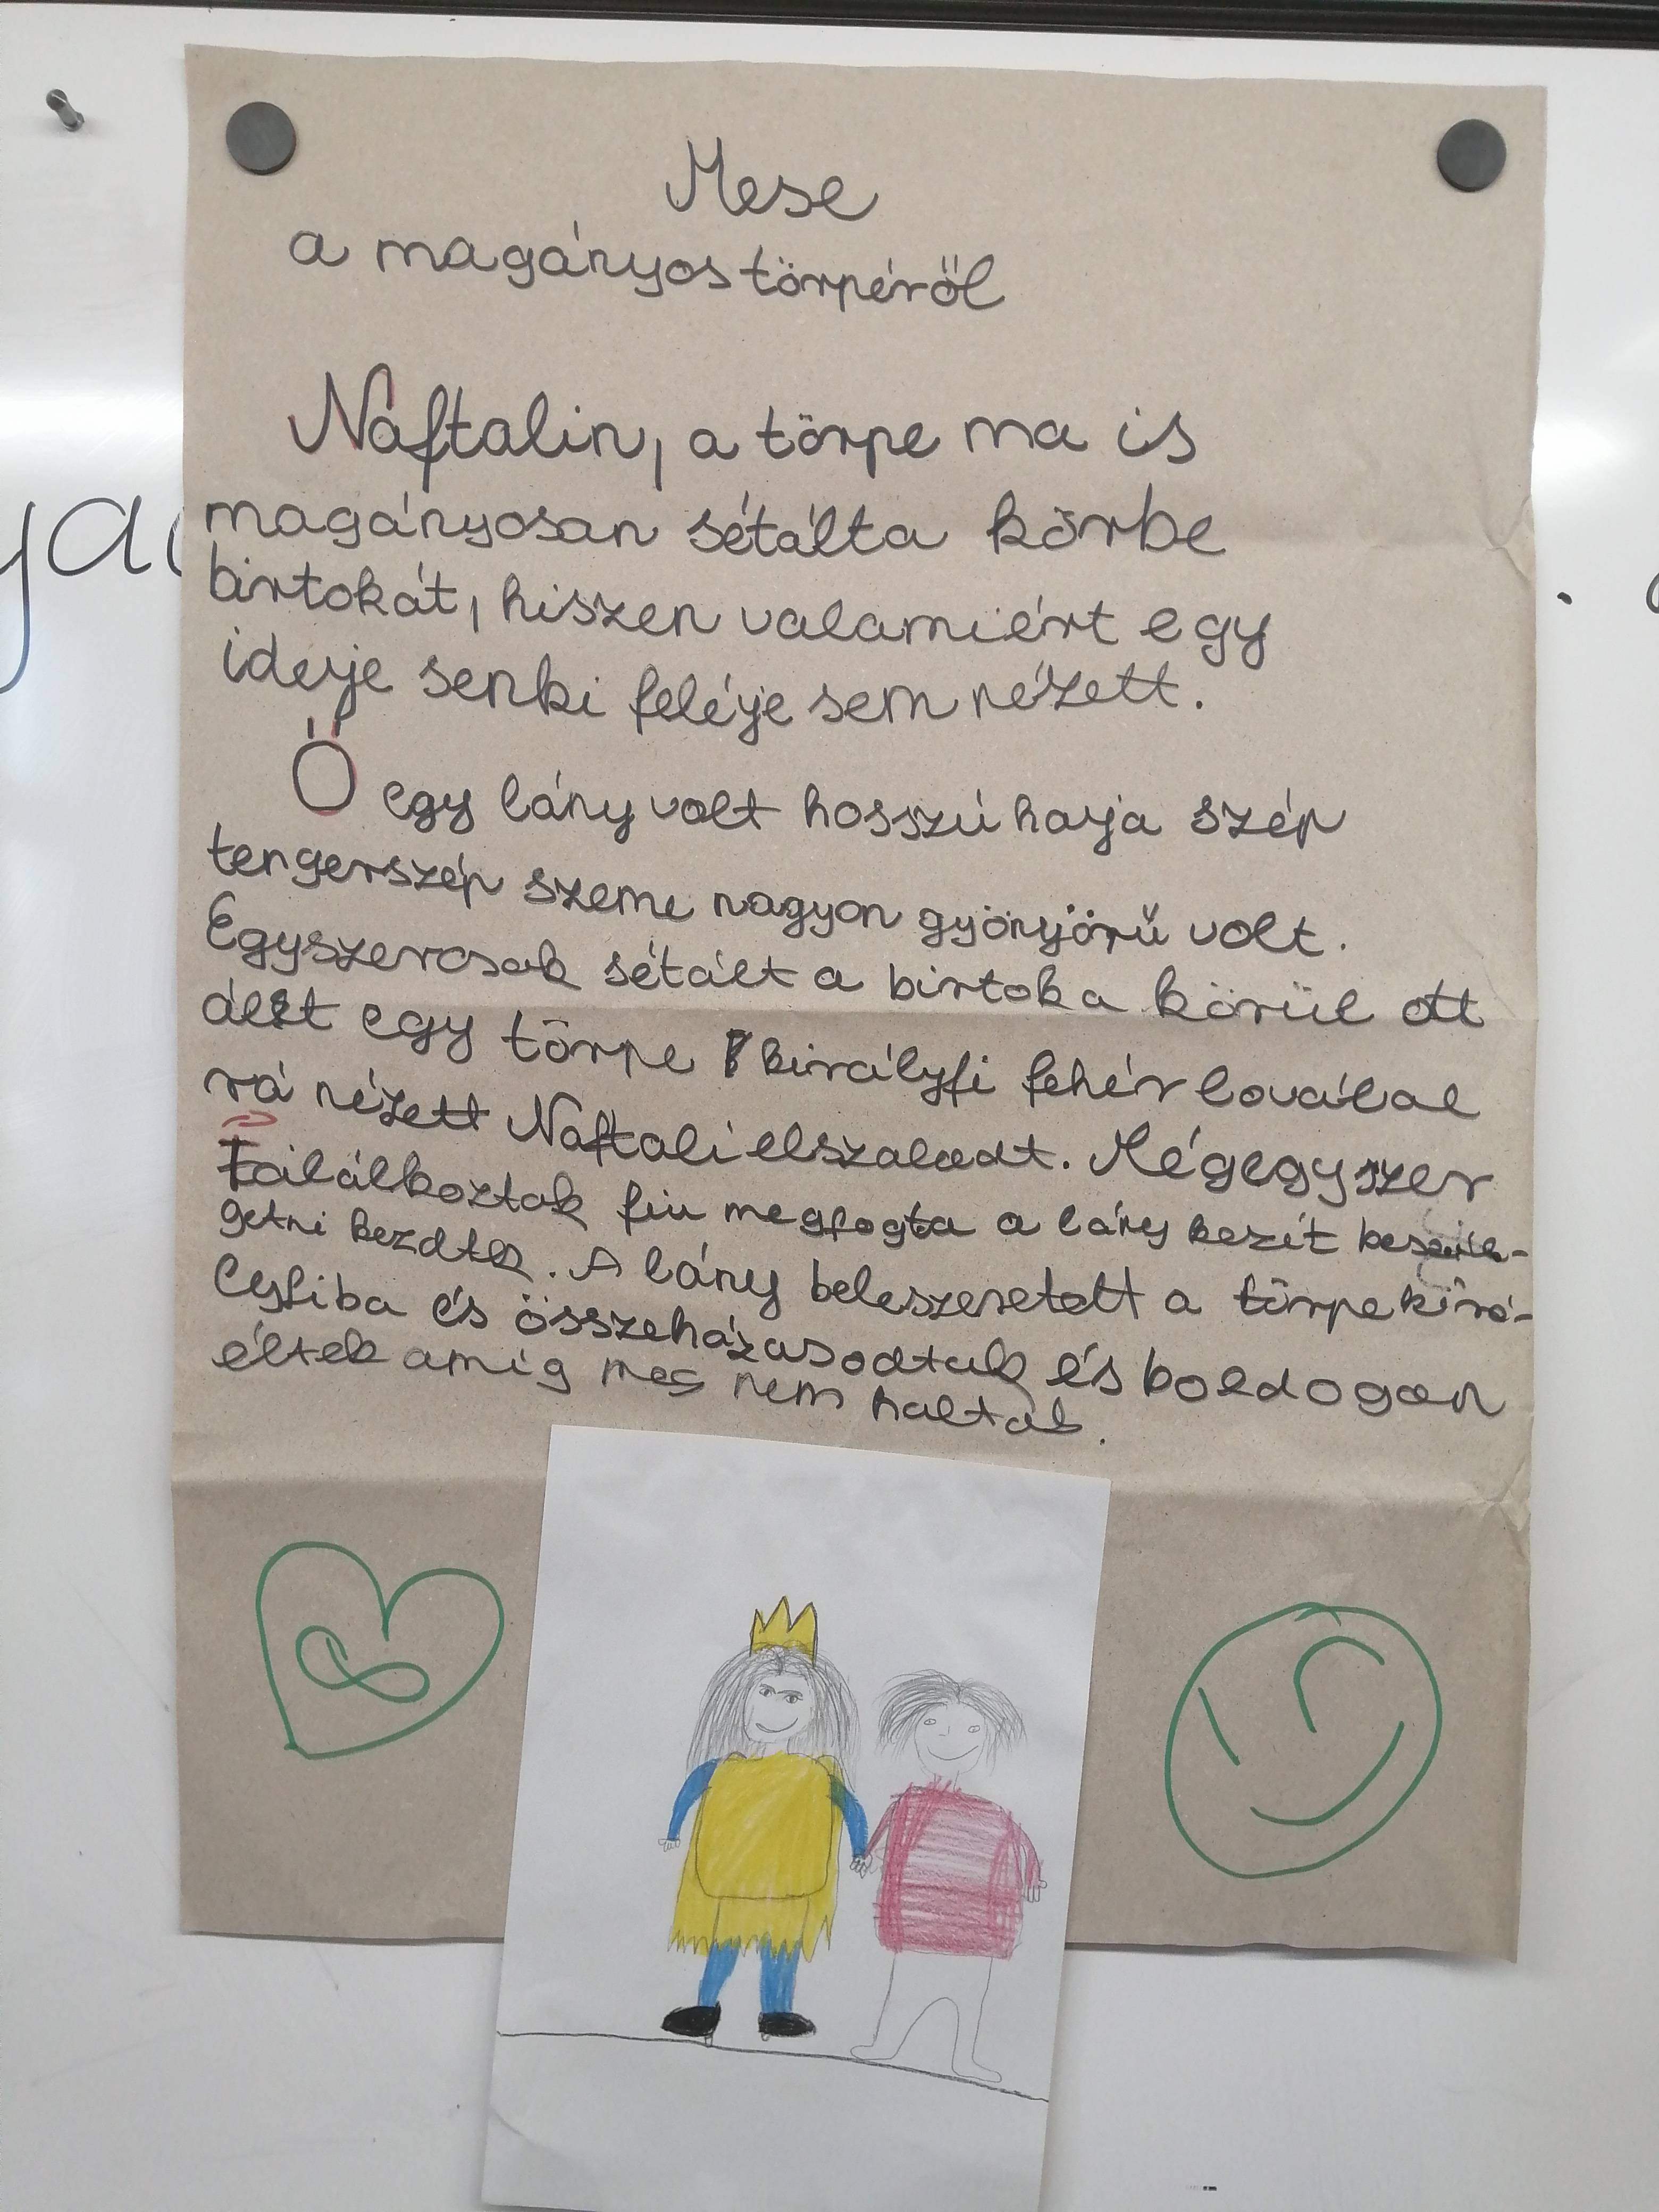 Mese
a magányos törpéről
Naftalin, a törpe ma is
magányosan sétálta körbe
birtokát, hiszen valamiért egy
ideje senki feléje sem nézett.
Ő egy lány volt hosszú haja szép
tengerszép szeme nagyon gyönyörű volt.
Egyszercsak sétált a birtoka körül ott
állt egy törpe királyfi fehér lovával
rá nézett Naftali elszaladt. Mégegyszer
Tailálkoztak fiu megfogta a lány kezét beszél-
getni kezdtek. A lány beleszeretett a törpe kirá-
lyfiba és összeházasodtak és boldogan
éltek amíg meg nem haltak.